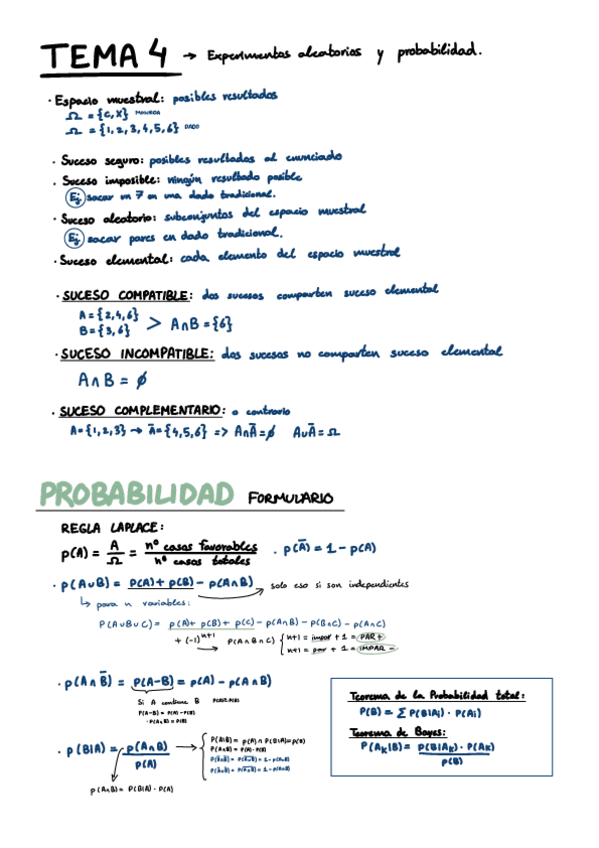 TEMA 4 → Experimentos aleatorios y probabilidad.
· Espacio muestral: posibles resultados
Ω = {C, X} MONEDA
Ω = {1, 2, 3, 4, 5, 6} DADO
· Suceso seguro: posibles resultados al enunciado
· Suceso imposible: ningún resultado posible
Ej sacar un 7 en una dado tradicional.
· Suceso aleatorio: subconjuntos del espacio muestral
Ej sacar pares en dado tradicional.
· Suceso elemental: cada elemento del espacio muestral
· SUCESO COMPATIBLE: dos sucesos comparten suceso elemental
A = {2, 4, 6}
B = {3, 6} > A∩B = {6}
· SUCESO INCOMPATIBLE: dos sucesos no comparten suceso elemental
A∩B = ∅
· SUCESO COMPLEMENTARIO: o contrario
A = {1, 2, 3} → Ā = {4, 5, 6} => A∩Ā = ∅ A∪Ā = Ω
PROBABILIDAD FORMULARIO
REGLA LAPLACE:
p(A) = A/Ω = nº casos favorables / nº casos totales · p(Ā) = 1 - p(A)
· p(A∪B) = p(A) + p(B) - p(A∩B) → solo eso si son independientes
↳ para n variables:
P(A∪B∪C) = p(A) + p(B) + p(C) - p(A∩B) - p(B∩C) - p(A∩C)
+ (-1)ⁿ⁺¹ p(A∩B∩C) { n+1 = impar + 1 = PAR +
n+1 = par + 1 = IMPAR -
· p(A∩B̄) = p(A-B) = p(A) - p(A∩B)
Si A contiene B
P(A-B) = P(A) - P(B)
· P(A∩B) = P(B)
· p(B|A) = p(A∩B) / p(A)
P(A∩B) = P(A) · P(B)
p(A∩B) = P(B|A) · P(A)
Teorema de la Probabilidad total:
P(B) = Σ P(B|Ai) · P(Ai)
Teorema de Bayes:
P(AK|B) = P(B|AK) · P(AK) / p(B)